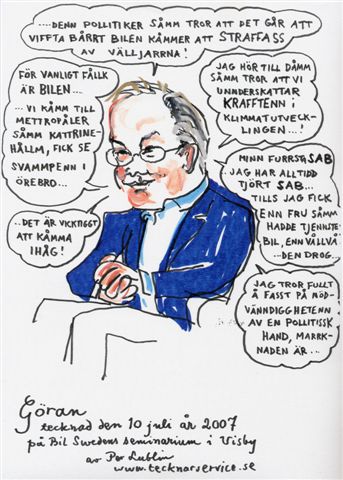 ....DENN POLLITIKER SÅMM TROR ATT DET GÅR ATT
VIFFTA BÅRRT BILEN KÅMMER ATT STRAFFASS
AV VÄLLJARRNA!
FÖR VANLIGT FÅLLK
ÄR BILEN....
... VI KÅMM TILL
METTROPÅLER
SÅMM KATTRINE-
HÅLLM, FICK SE
SVAMMPENN I
ÖREBRO...
..DET ÄR VICKTIGGT
ATT KÅMMA
IHÅG!
JAG HÖR TILL DÄMM
SÅMM TROR ATT VI
UNNDERSKATTAR
KRAFFTENN I
KLIMATUTVECK-
LINGEN...!
MINN FURRSTA SAB
JAG HAR ALLTIDD
TJÖRT SAB...
TILLS JAG FICK
ENN FRU SÅMM
HADDE TJENNSTE-
BIL, ENN VÅLLVÅ
..DEN DROG...
JAG TROR FULLT
Å FASST PÅ NÖD-
VÄNNDIGGHETENN
AV EN POLLITISSK
HAND, MARRK-
NADEN ÄR...
Göran
tecknad den 10 juli år 2007
på Bil Swedens seminarium i Visby
av Per Lublin
www.tecknarservice.se